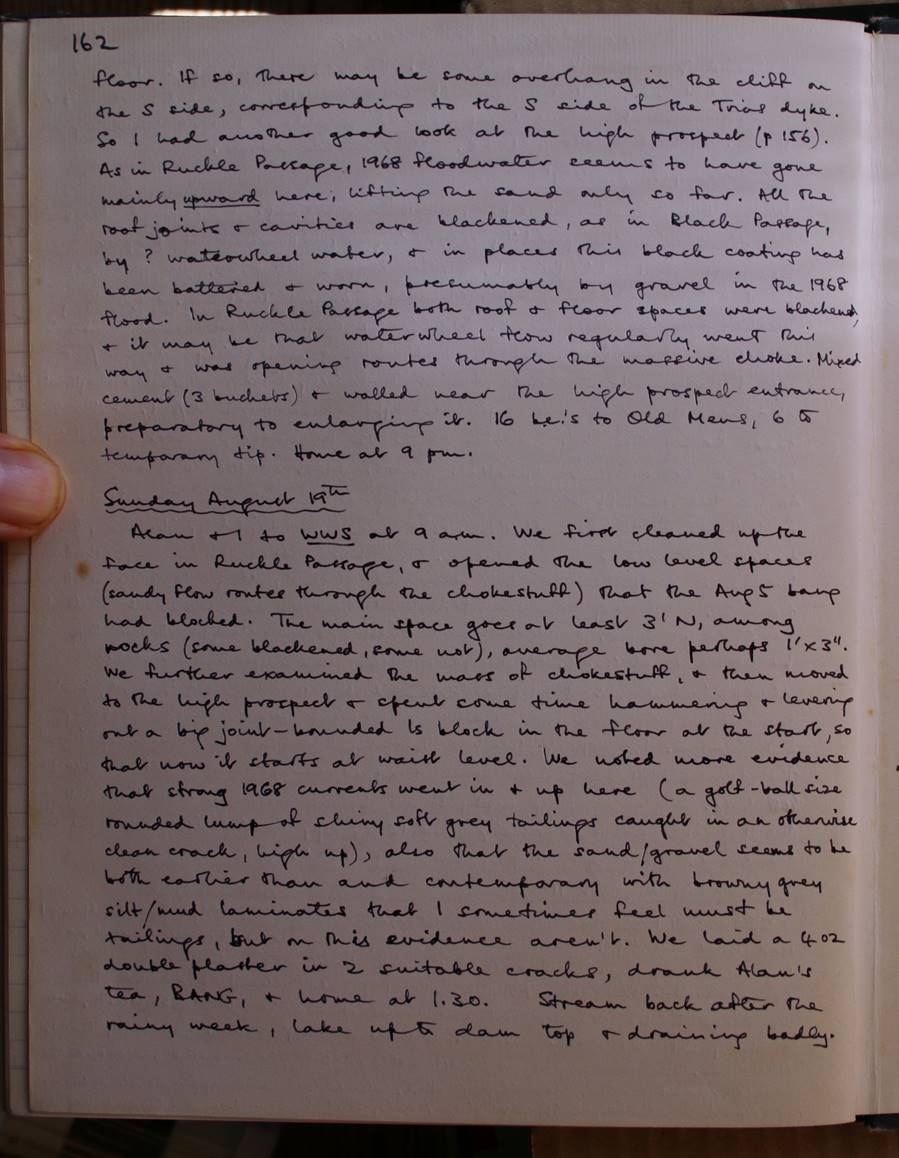 162
floor. If so, there may be some overhang in the cliff on
the S side, corresponding to the S side of the Trias dyke.
So I had another good look at the high prospect (p 156).
As in Ruckle Passage, 1968 floodwater seems to have gone
mainly upward here, lifting the sand only so far. All the
roof joints & cavities are blackened, as in Black Passage,
by ? waterwheel water, & in places this black coating has
been battered & worn, presumably by gravel in the 1968
flood. In Ruckle Passage both roof & floor spaces were blackened,
& it may be that waterwheel flow regularly went this
way & was opening routes through the massive choke. Mixed
cement (3 buckets) & walled near the high prospect entrance,
preparatory to enlarging it. 16 be.'s to Old Mens, 6 to
temporary tip. Home at 9 pm.
Sunday August 19th
Alan + I to WWS at 9 a.m. We first cleaned up the
face in Ruckle Passage, & opened the low level spaces
(sandy flow routes through the chokestuff) that the Aug 5 bang
had blocked. The main space goes at least 3' N, among
rocks (some blackened, some not), average bore perhaps 1' x 3".
We further examined the mass of chokestuff, & then moved
to the high prospect & spent some time hammering & levering
out a big joint-bounded ls block in the floor at the start, so
that now it starts at waist level. We noted more evidence
that strong 1968 currents went in & up here (a golf-ball size
rounded lump of shiny soft grey tailings caught in an otherwise
clean crack, high up), also that the sand/gravel seems to be
both earlier than and contemporary with browny grey
silt/mud laminates that I sometimes feel must be
tailings, but on this evidence aren't. We laid a 4 oz
double plaster in 2 suitable cracks, drank Alan's
tea, BANG, & home at 1.30. Stream back after the
rainy week, lake up to dam top & draining badly.